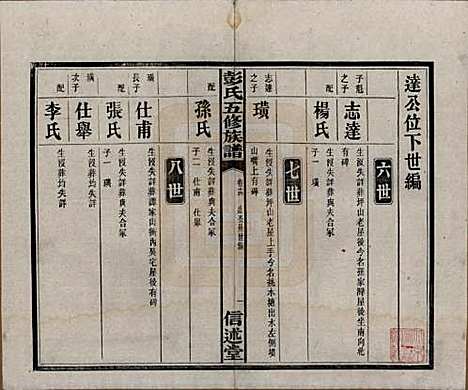 達公位下世編
六世
子魁
之子
志達
生沒失詳葬坪山老屋後今名孫家灣屋後坐南向北
有碑
配
楊氏
生沒失詳葬與夫合冢
子一 璜
七世
志達
之子
璜
生沒失詳葬坪山老屋上手今名挑水塘出水左側墳
山嘴上有碑
配
孫氏
生沒失詳葬與夫合冢
子二 仕甫 仕舉
彭氏五修族譜
一
信述堂
八世
璜
長子
仕甫
生沒失詳葬譚家山坳吳宅屋後有碑
配
張氏
生沒失詳葬與夫合冢
璜
次子
仕舉
生沒葬均失詳
配
李氏
生沒葬均失詳